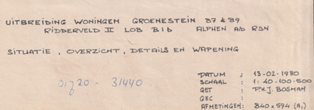 UITBREIDING WONINGEN GROENESTEIN 37 & 39
RIDDERVELD II LOB B1b ALPHEN a/d RIJN
SITUATIE, OVERZICHT, DETAILS EN WAPENING
01g20 - 31440
DATUM : 13-02-1980
SCHAAL : 1:40-100-500
GET : Fx J. BOSMAN
GEC :
AFMETINGEN: 840 x 594 (A1)